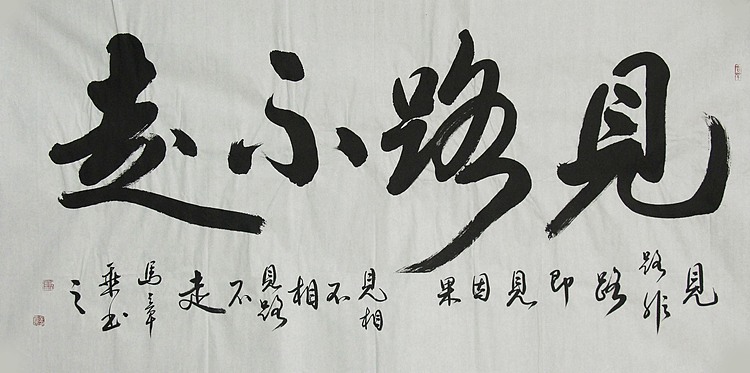 見路不走
見路非路即見因果
見相不相見路不走
馬章乘书之